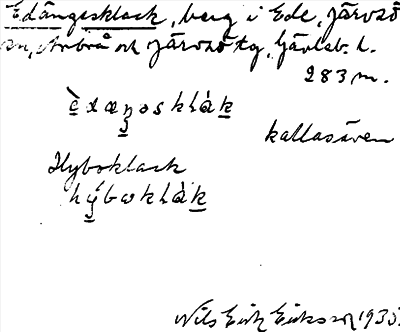 Edängesklack, berg i Ede, Järvsö
sn, Arbrå och Järvsö tg, Gävleb. l.
283 m.
èdæŋəsklàk
kallas även
Hyboklack
hýbωklàk
Nils Erik Eriksson 1935.